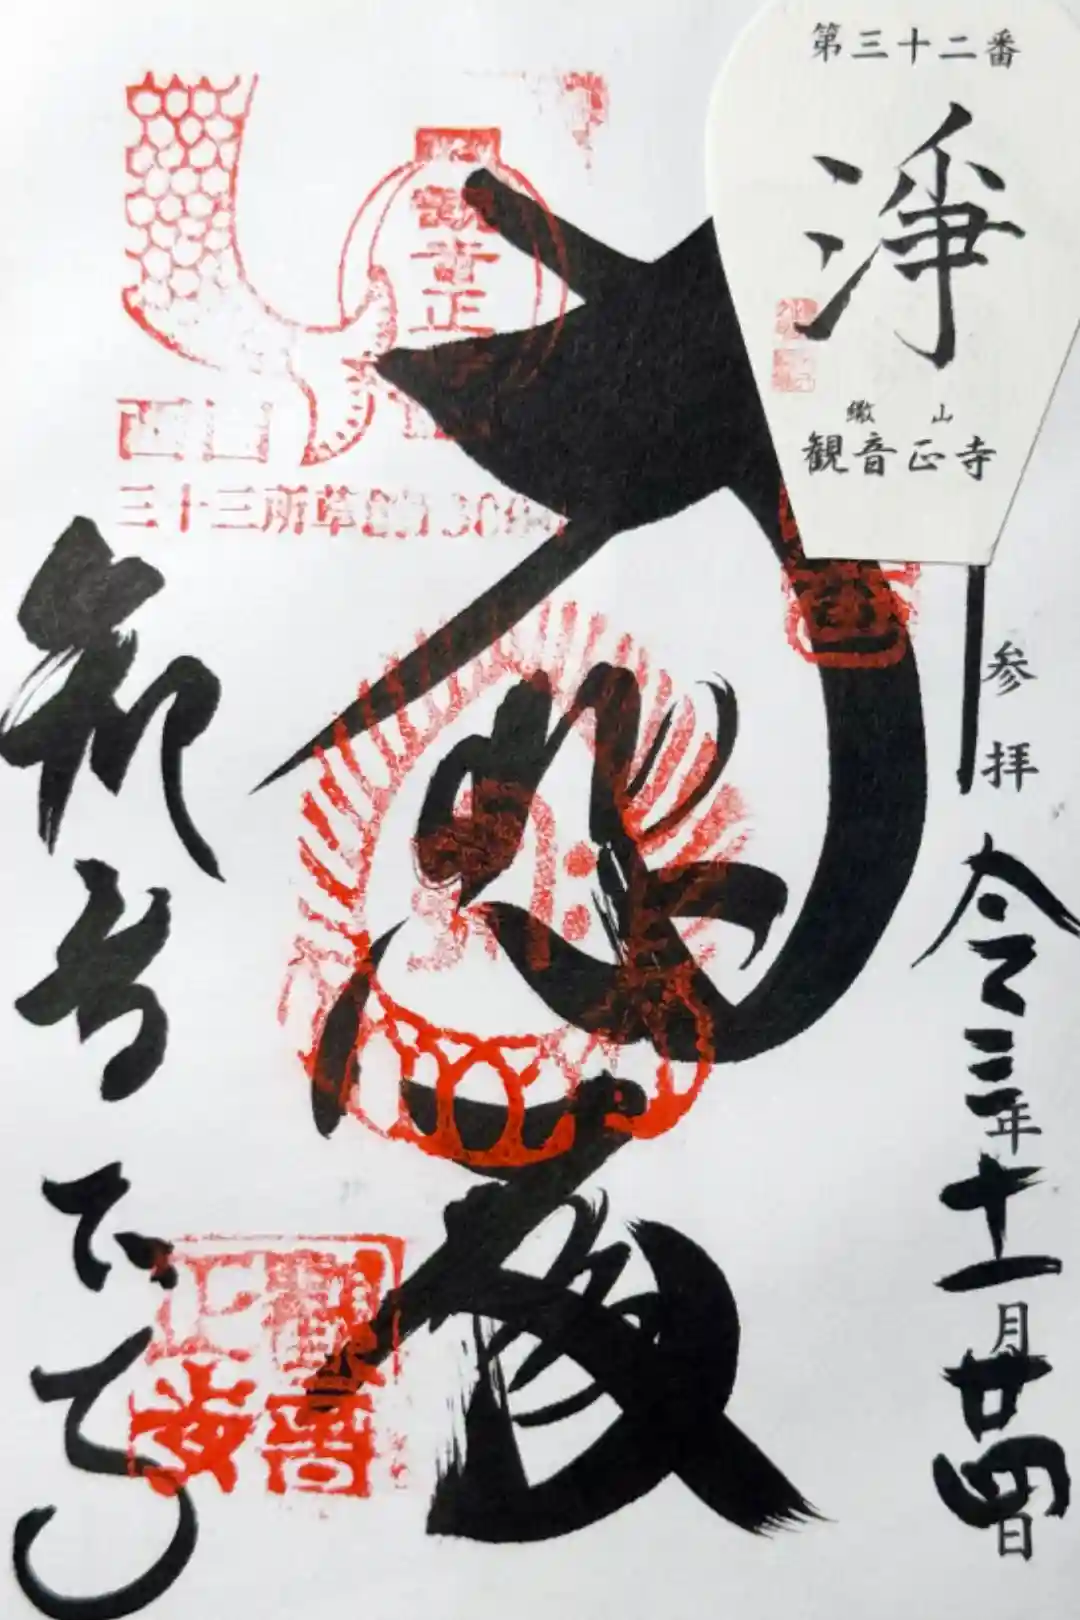 第三十二番
淨
繖山
観音正寺
参拝
令三年十一月廿四日
大悲殿
観音正
西国
三十三所草創1300年
観音正寺